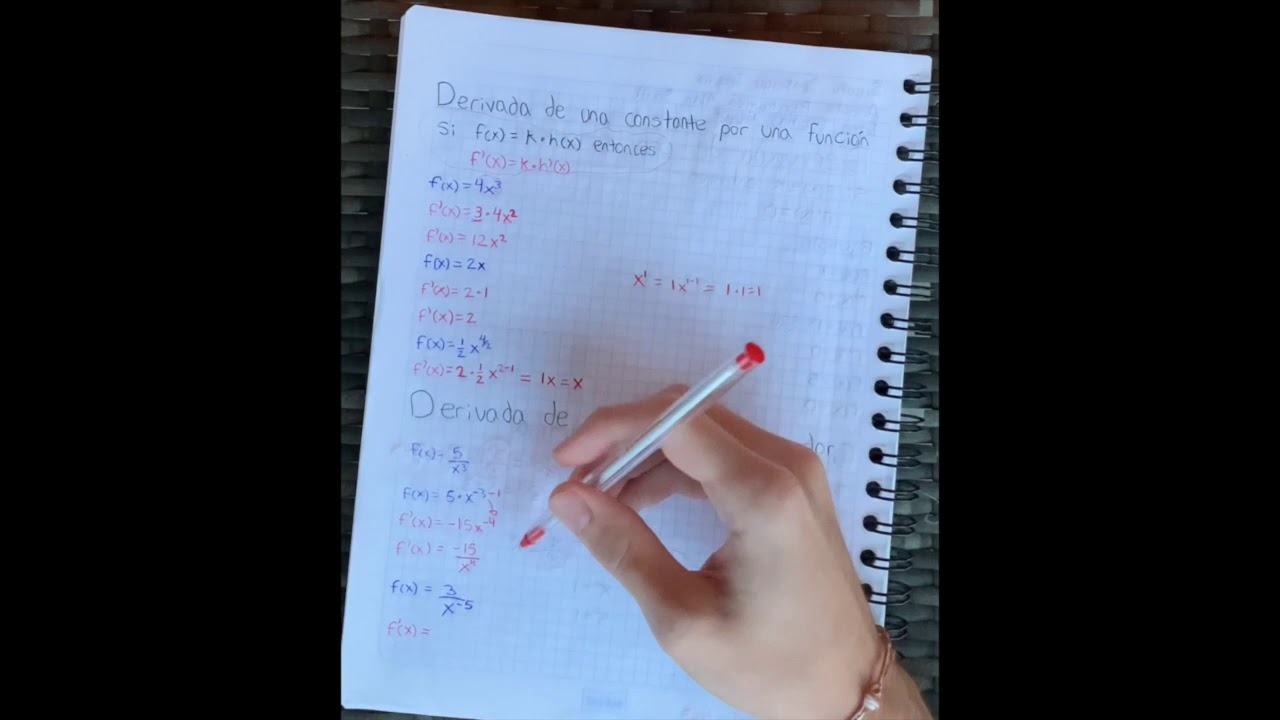 Derivada de una constante por una función
Si f(x) = k·h(x) entonces
f'(x) = k·h'(x)
f(x) = 4x³
f'(x) = 3·4x²
f'(x) = 12x²
f(x) = 2x
x¹ = 1x¹⁻¹ = 1·1=1
f'(x) = 2·1
f'(x) = 2
f(x) = 1/2 x^4/2
f'(x) = 2·1/2 x²⁻¹ = 1x = x
Derivada de
f(x) = 5/x³
f(x) = 5·x⁻³⁻¹
f'(x) = -15x⁻⁴
f'(x) = -15/x⁴
f(x) = 3/x⁻⁵
f'(x) =